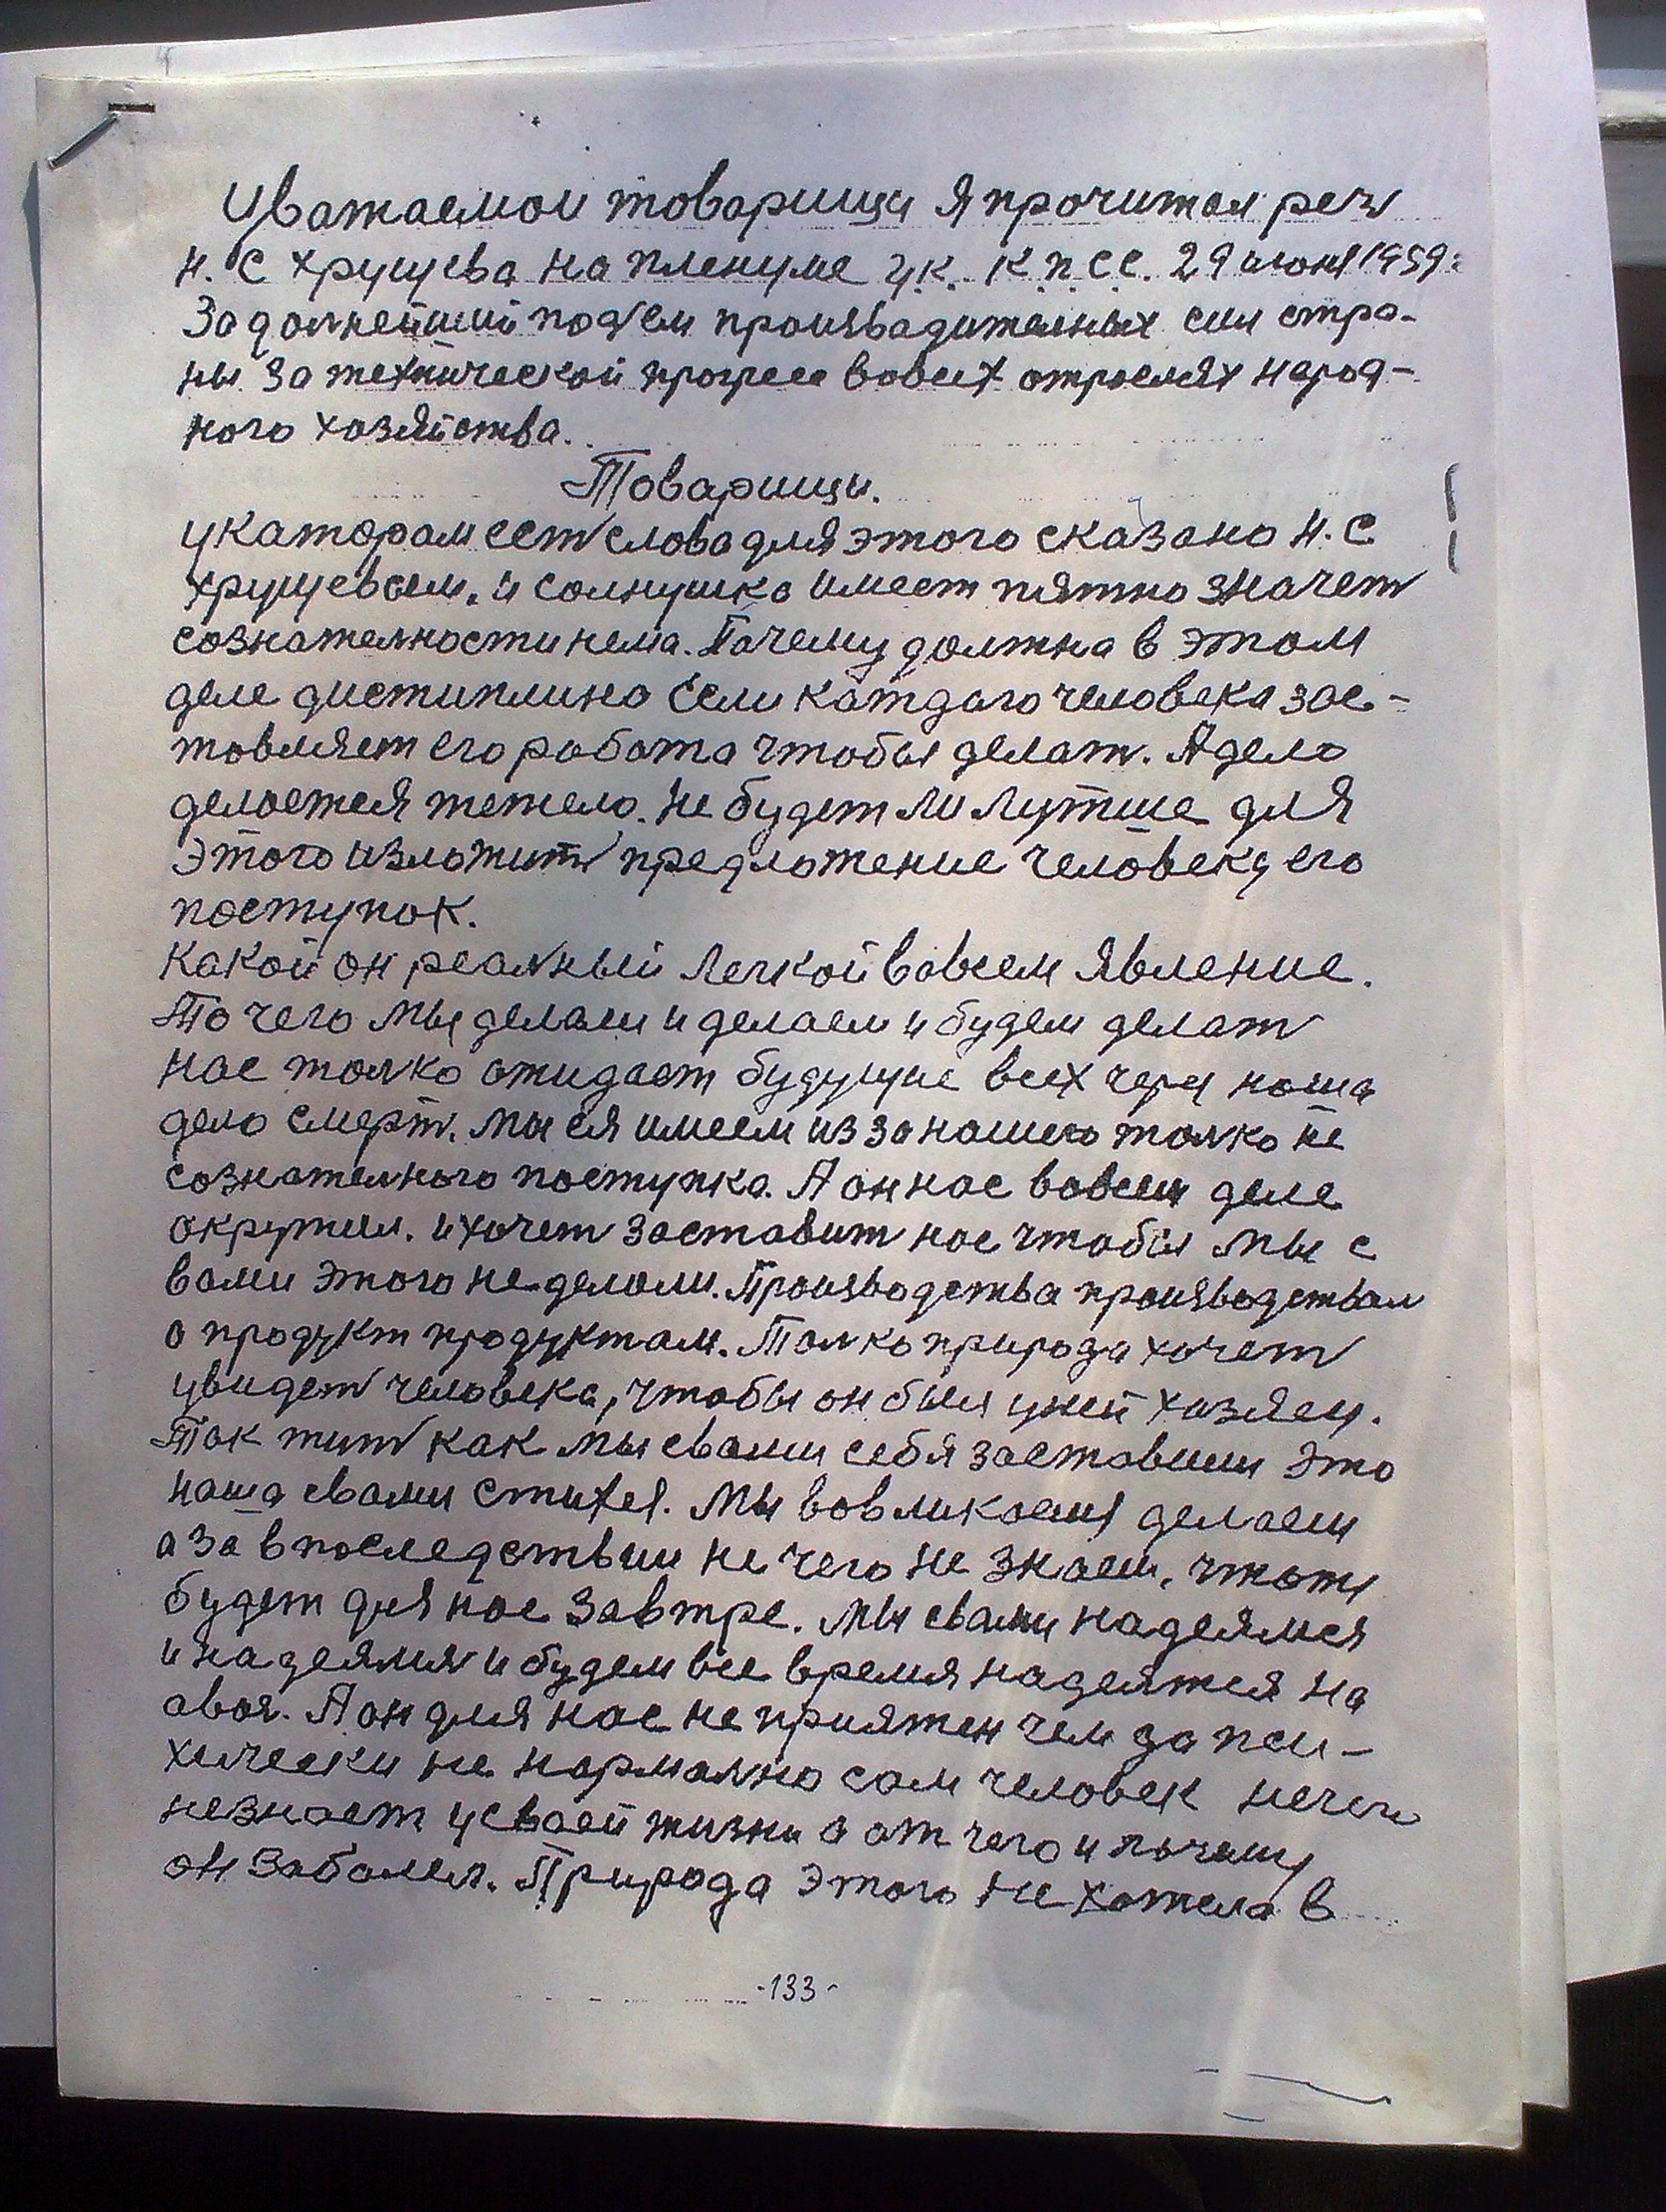 Уважаемои товарищи Я прочитал реч
Н. С Хрущева на пленуме Ц.К. К.П.С.С. 29 июня 1959г
За далнейший под'ем произвадителных сил стра-
ны за технической прогресс вовсех отрослях народ-
ного хозяйства.
Товарищи.
у каторам ест слова для этого сказано Н. С
Хрущевым. и солнушка имеет пятно значет
сознателности нема. Почему должна в этом
деле дистиплина Если каждаго человека зас-
товляет его работа чтобы делат. А дело
делается тежело. Не будет ли лутше для
этого изложит предложение человеку его
поступок.
Какой он реалный легкой вовсем явление.
То чего мы делали и делаем и будем делат
нас толко ожидает будущие всех через наша
дело смерт. мы ея имеем из за нашего толко не
сознателного поступка. А он нас вовсем деле
окружил. и хочет заставит нас чтобы мы с
вами этого не делоли. Производства производствам
а продукт продуктам. Толко природа хочет
увидет человека, чтобы он был у ней хозяец.
Так жит как мы свами себя заставили это
наша свами стихея. Мы вовликаемя делаем
а за впоследствии не чего не знаем, чтоже
будет для нас завтре. Мы свами надеямся
и надеялис и будем все время надеятся на
авоз. А он для нас не приятен чем за пси-
хически не нормално сам человек нечего
незнает у своей жизни а от чего и почему
он заболел. Природа этого не хотела в
-133-